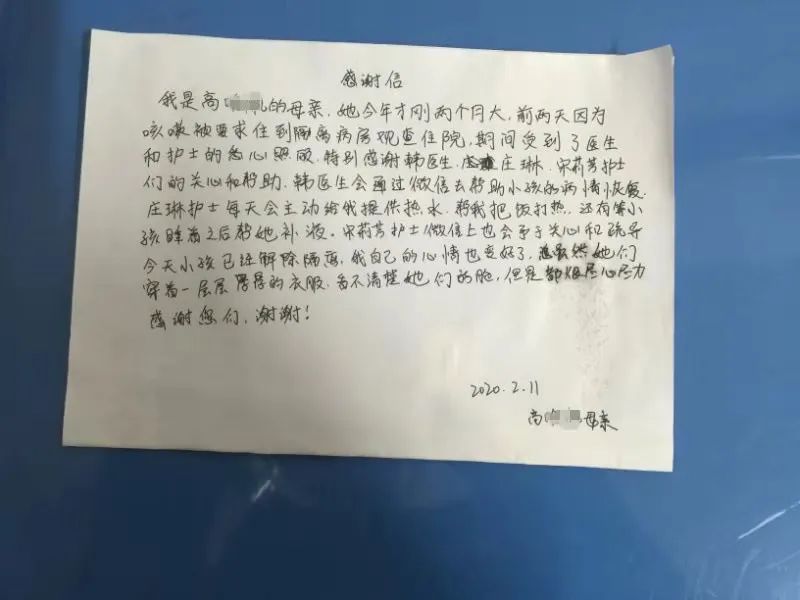 感谢信
我是高 的母亲，她今年才刚两个月大，前两天因为
咳嗽被要求住到隔离病房观查住院，期间受到了医生
和护士的悉心照顾，特别感谢韩医生，庄琳，宋莉芳护士
们的关心和帮助，韩医生会通过微信去帮助小孩的病情恢复
庄琳护士每天会主动给我提供热水，帮我把饭打热，还有等小
孩睡着之后帮她补液。宋莉芳护士微信上也会予于关心和疏导
今天小孩已经解除隔离，我自己的心情也变好了，虽然她们
穿着一层层厚厚的衣服，看不清楚她们的脸，但是都很尽心尽力
感谢您们，谢谢！
2020.2.11
高 母亲